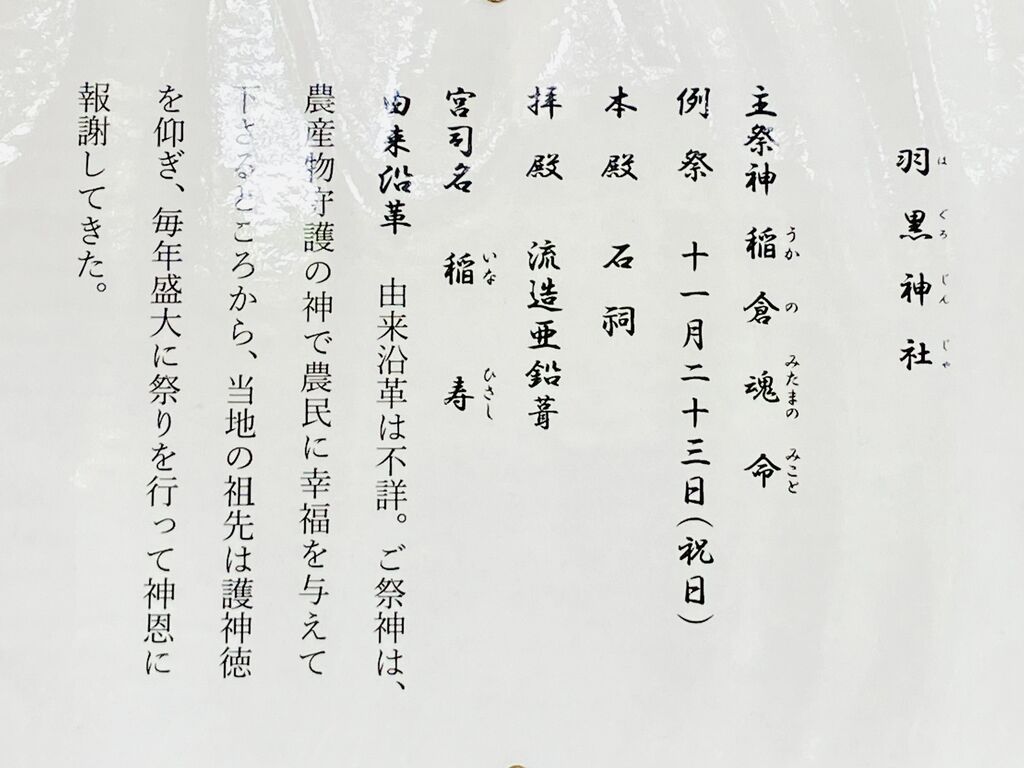 羽黒神社
はぐろじんじゃ
主祭神 稲倉魂命
うかのみたまのみこと
例祭 十一月二十三日(祝日)
本殿 石祠
拝殿 流造亜鉛葺
宮司名 稲 寿
いな ひさし
由来沿革 由来沿革は不詳。ご祭神は、
農産物守護の神で農民に幸福を与えて
下さるところから、当地の祖先は護神徳
を仰ぎ、毎年盛大に祭りを行って神恩に
報謝してきた。